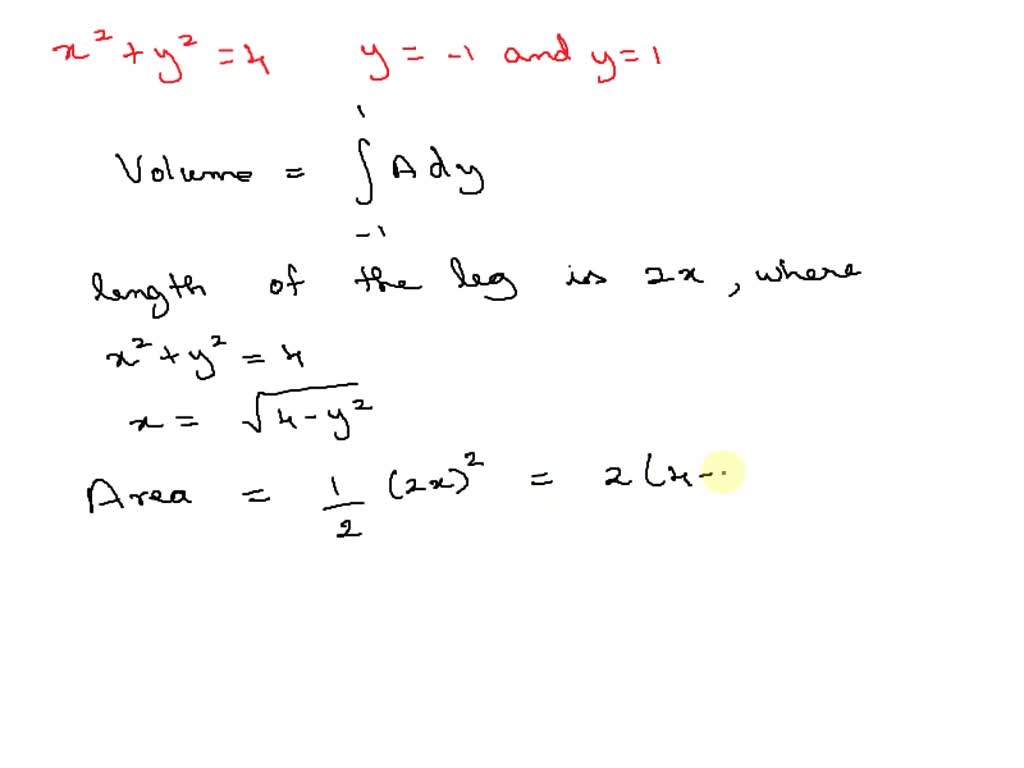 x² + y² = 4 y = -1 and y = 1
Volume = ∫₋₁¹ A dy
length of the leg is 2x, where
x² + y² = 4
x = √(4 - y²)
Area = 1/2 (2x)² = 2(4-